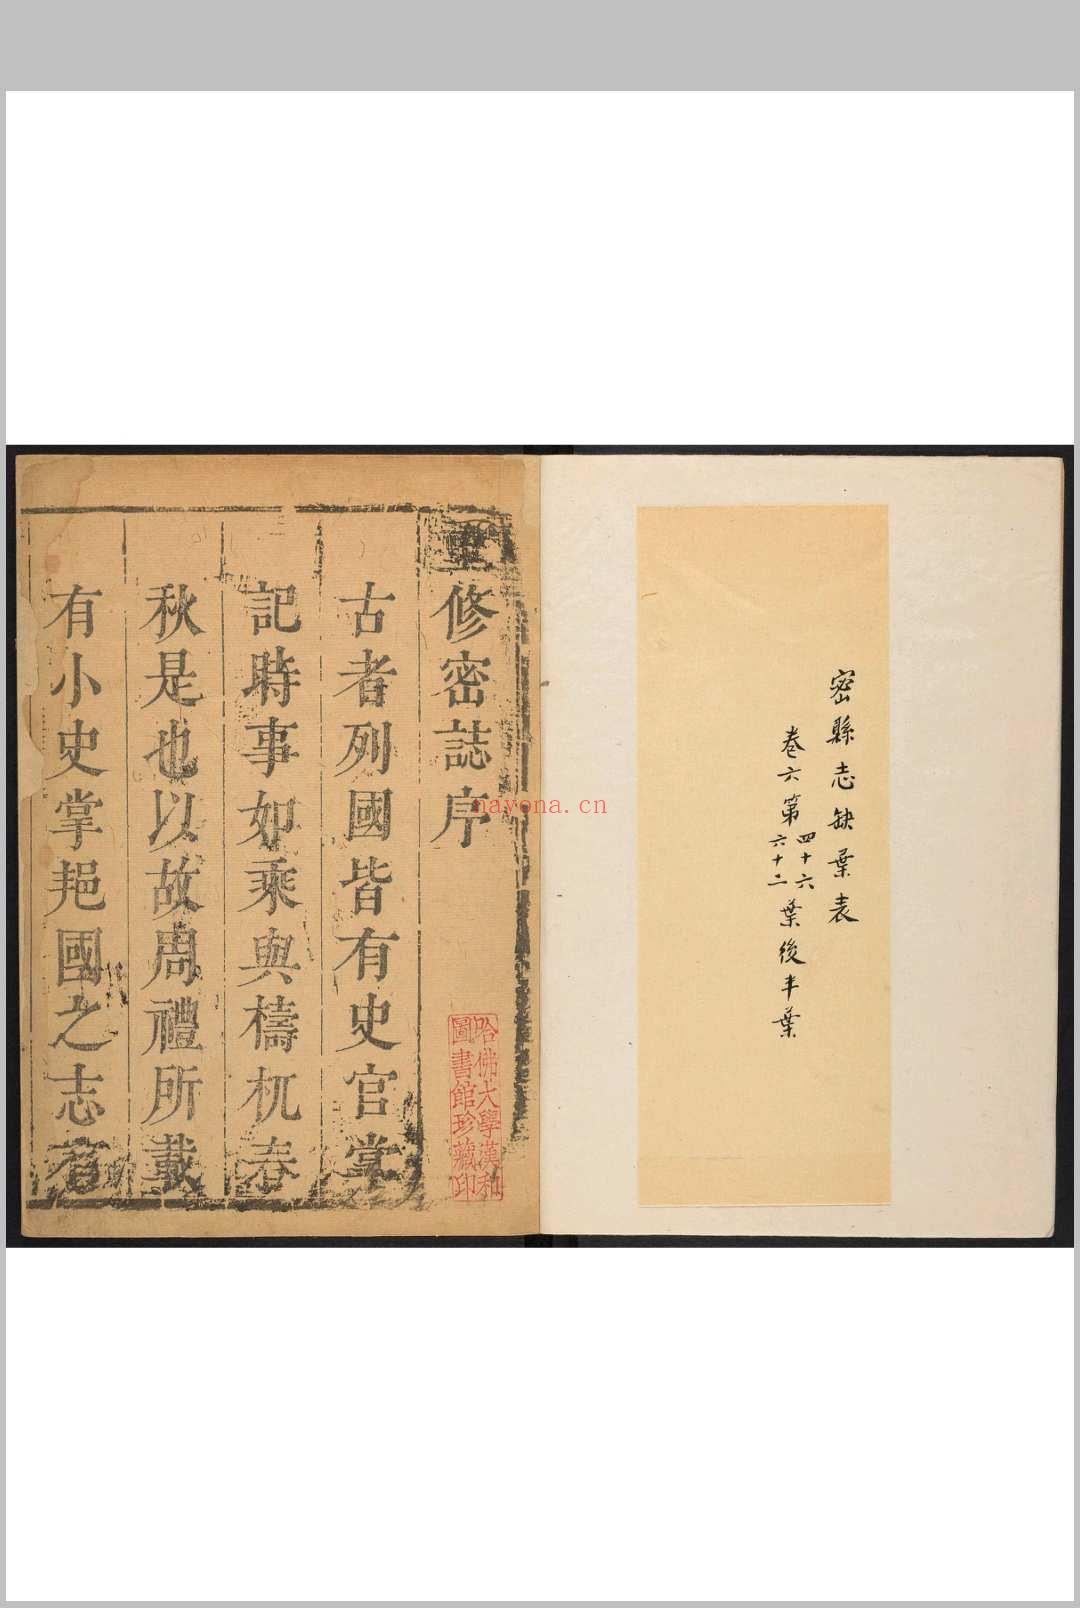 密縣志缺葉表
卷六第四十六
六十二葉後半葉
修密誌序
古者列國皆有史官掌
記時事如乘與檮杌春
秋是也以故周禮所載
有小史掌邦國之志者
哈佛大學漢和
圖書館珍藏印
nayona.cn